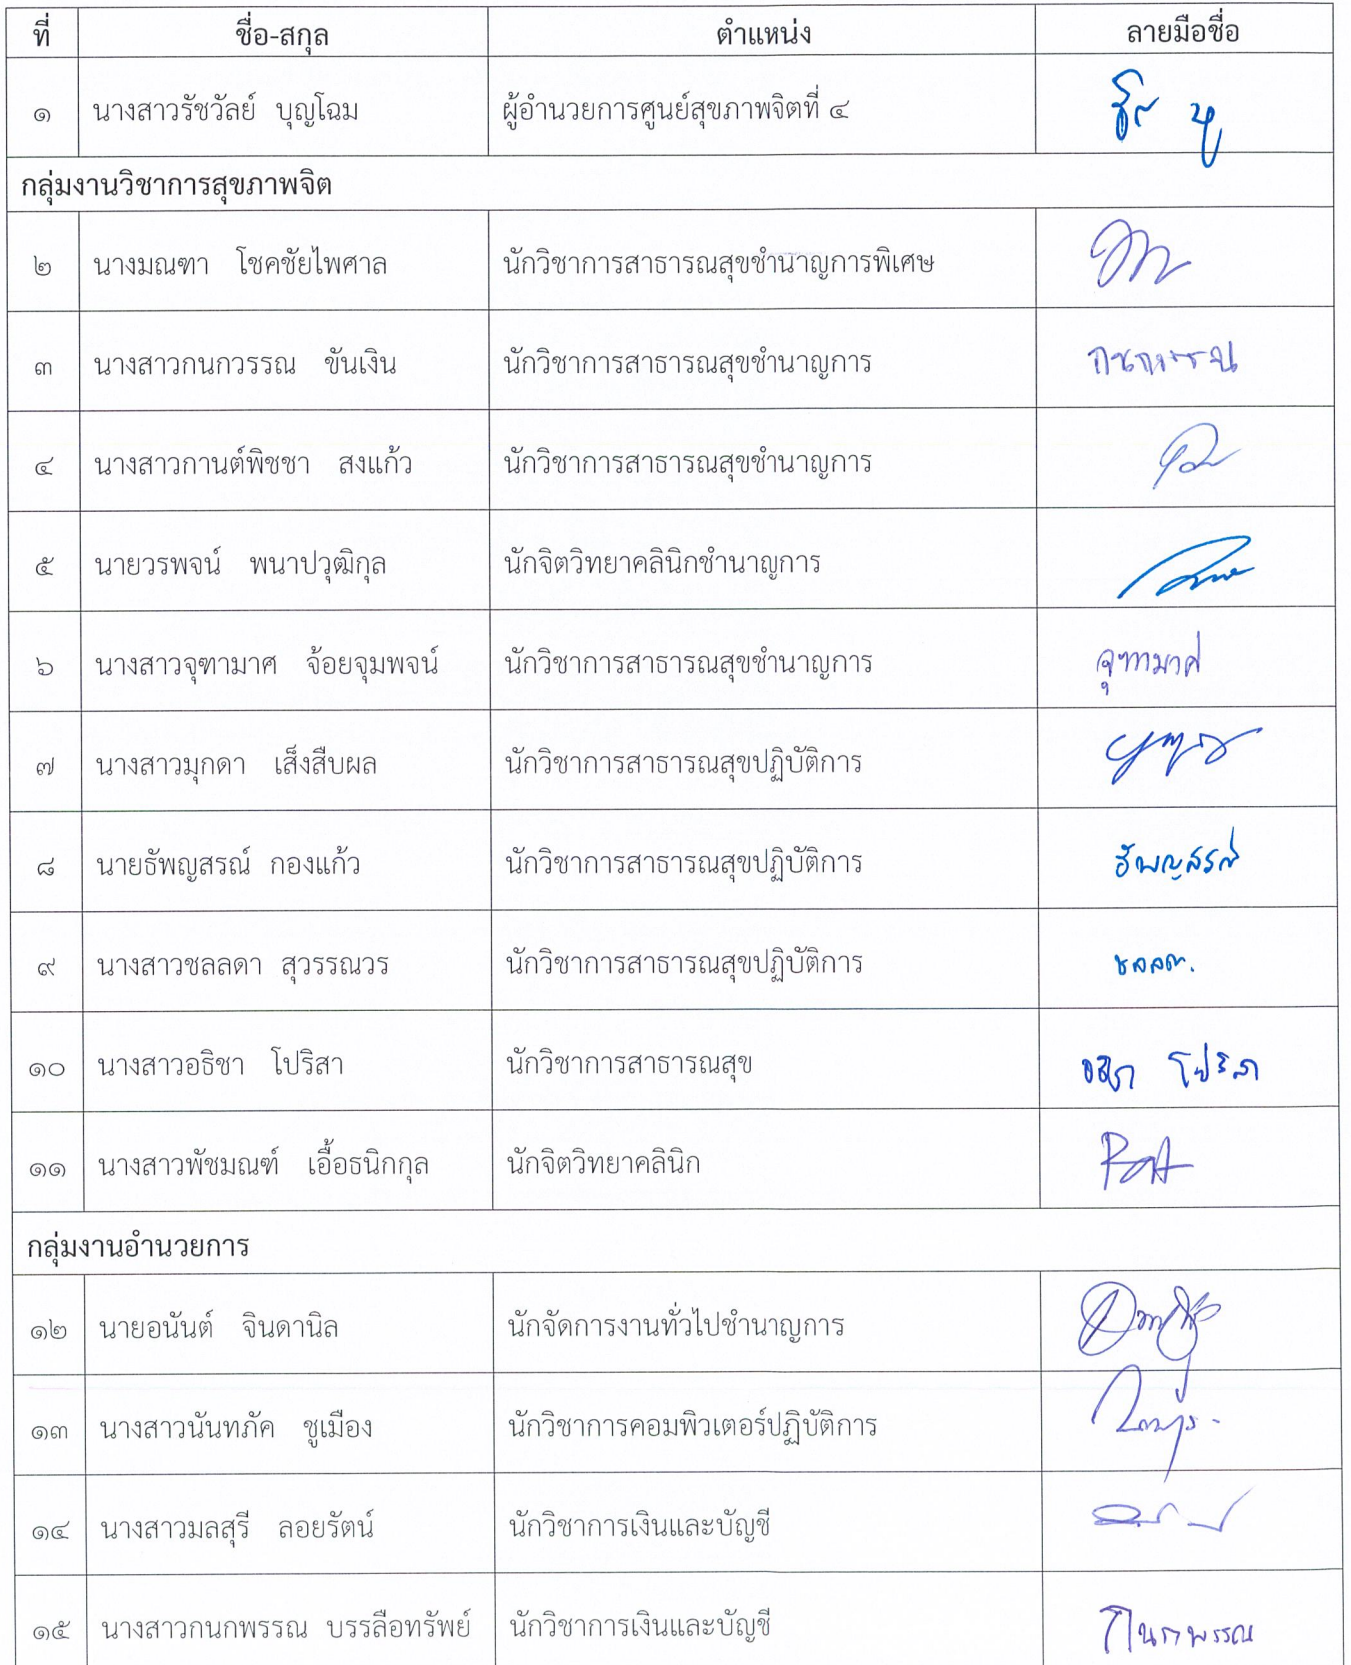 ที่ ชื่อ-สกุล ตำแหน่ง ลายมือชื่อ
๑ นางสาวรัชวัลย์ บุญโฉม ผู้อำนวยการศูนย์สุขภาพจิตที่ ๔
กลุ่มงานวิชาการสุขภาพจิต
๒ นางมณฑา โชคชัยไพศาล นักวิชาการสาธารณสุขชำนาญการพิเศษ
๓ นางสาวกนกวรรณ ขันเงิน นักวิชาการสาธารณสุขชำนาญการ กนกวรรณ
๔ นางสาวกานต์พิชชา สงแก้ว นักวิชาการสาธารณสุขชำนาญการ
๕ นายวรพจน์ พนาปวุฒิกุล นักจิตวิทยาคลินิกชำนาญการ
๖ นางสาวจุฑามาศ จ้อยจุมพจน์ นักวิชาการสาธารณสุขชำนาญการ จุฑามาศ
๗ นางสาวมุกดา เส็งสืบผล นักวิชาการสาธารณสุขปฏิบัติการ
๘ นายธัพญสรณ์ กองแก้ว นักวิชาการสาธารณสุขปฏิบัติการ ธัพญสรณ์
๙ นางสาวชลลดา สุวรรณวร นักวิชาการสาธารณสุขปฏิบัติการ ชลลดา.
๑๐ นางสาวอธิชา โปริสา นักวิชาการสาธารณสุข อธิชา โปริสา
๑๑ นางสาวพัชมณฑ์ เอื้อธนิกกุล นักจิตวิทยาคลินิก
กลุ่มงานอำนวยการ
๑๒ นายอนันต์ จินดานิล นักจัดการงานทั่วไปชำนาญการ
๑๓ นางสาวนันทภัค ชูเมือง นักวิชาการคอมพิวเตอร์ปฏิบัติการ
๑๔ นางสาวมลสุรี ลอยรัตน์ นักวิชาการเงินและบัญชี
๑๕ นางสาวกนกพรรณ บรรลือทรัพย์ นักวิชาการเงินและบัญชี กนกพรรณ